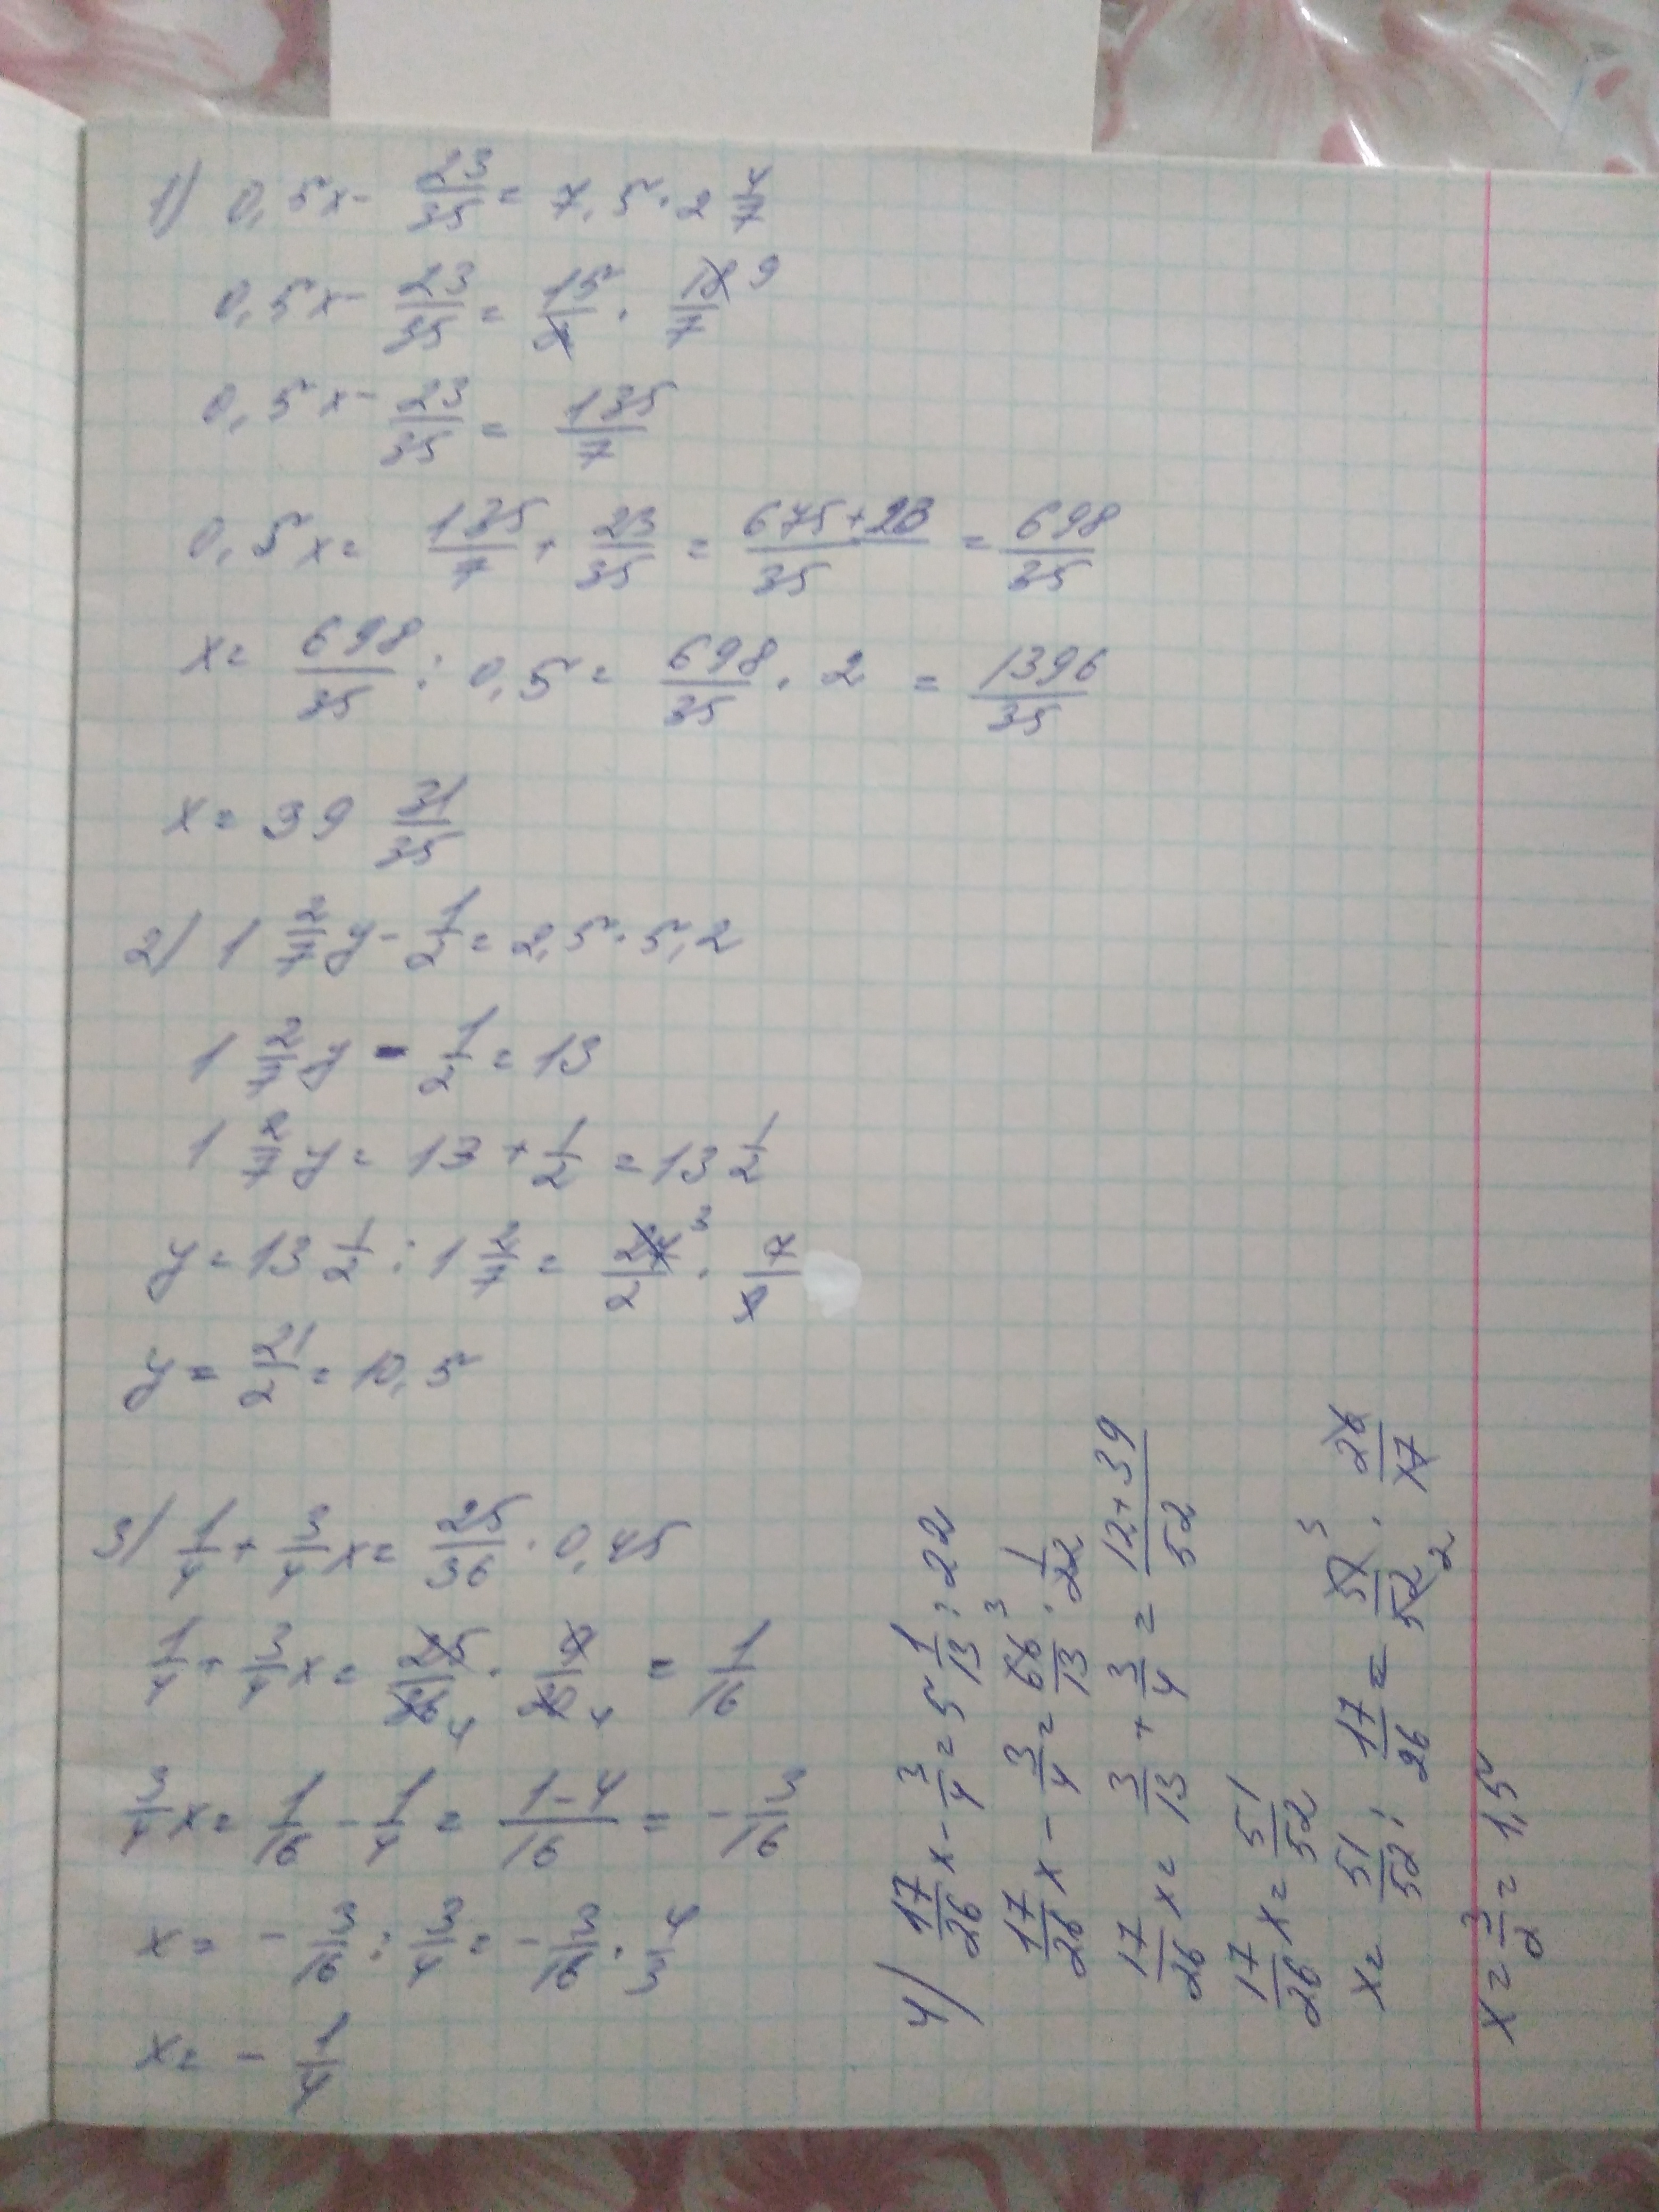 1) 0,5x - 23/35 = 7,5 · 2 4/7
0,5x - 23/35 = 15/2 · 18/7 9
0,5x - 23/35 = 135/7
0,5x = 135/7 + 23/35 = (675+23)/35 = 698/35
x = 698/35 : 0,5 = 698/35 · 2 = 1396/35
x = 39 31/35
2) 1 2/7 y - 1/2 = 2,5 · 5,2
1 2/7 y - 1/2 = 13
1 2/7 y = 13 + 1/2 = 13 1/2
y = 13 1/2 : 1 2/7 = 27/2 3 · 7/9
y = 21/2 = 10,5
3) 1/4 + 3/4 x = 25/36 · 0,45
1/4 + 3/4 x = 25/36 4 · 9/20 4 = 1/16
3/4 x = 1/16 - 1/4 = (1-4)/16 = - 3/16
x = - 3/16 : 3/4 = - 3/16 · 4/3
x = - 1/4
4) 17/26 x - 3/4 = 5 1/13 : 22
17/26 x - 3/4 = 66/13 3 · 1/22
17/26 x = 3/13 + 3/4 = (12+39)/52
17/26 x = 51/52
x = 51/52 : 17/26 = 51/52 3 2 · 26/17
x = 3/2 = 1,5